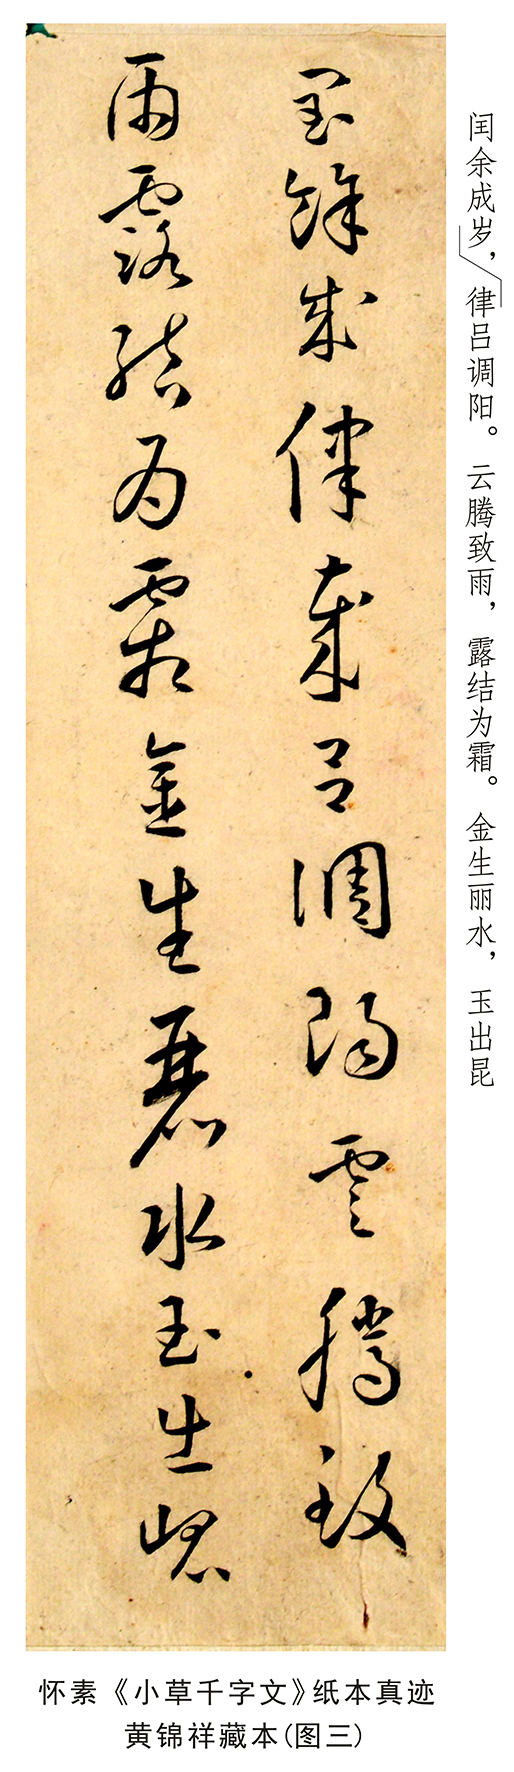 闰余成岁，律吕调阳。云腾致雨，露结为霜。金生丽水，玉出昆
閏餘成律歲吕調陽雲騰致
雨露結為霜金生麗水玉出崐
怀素《小草千字文》纸本真迹
黄锦祥藏本(图三)